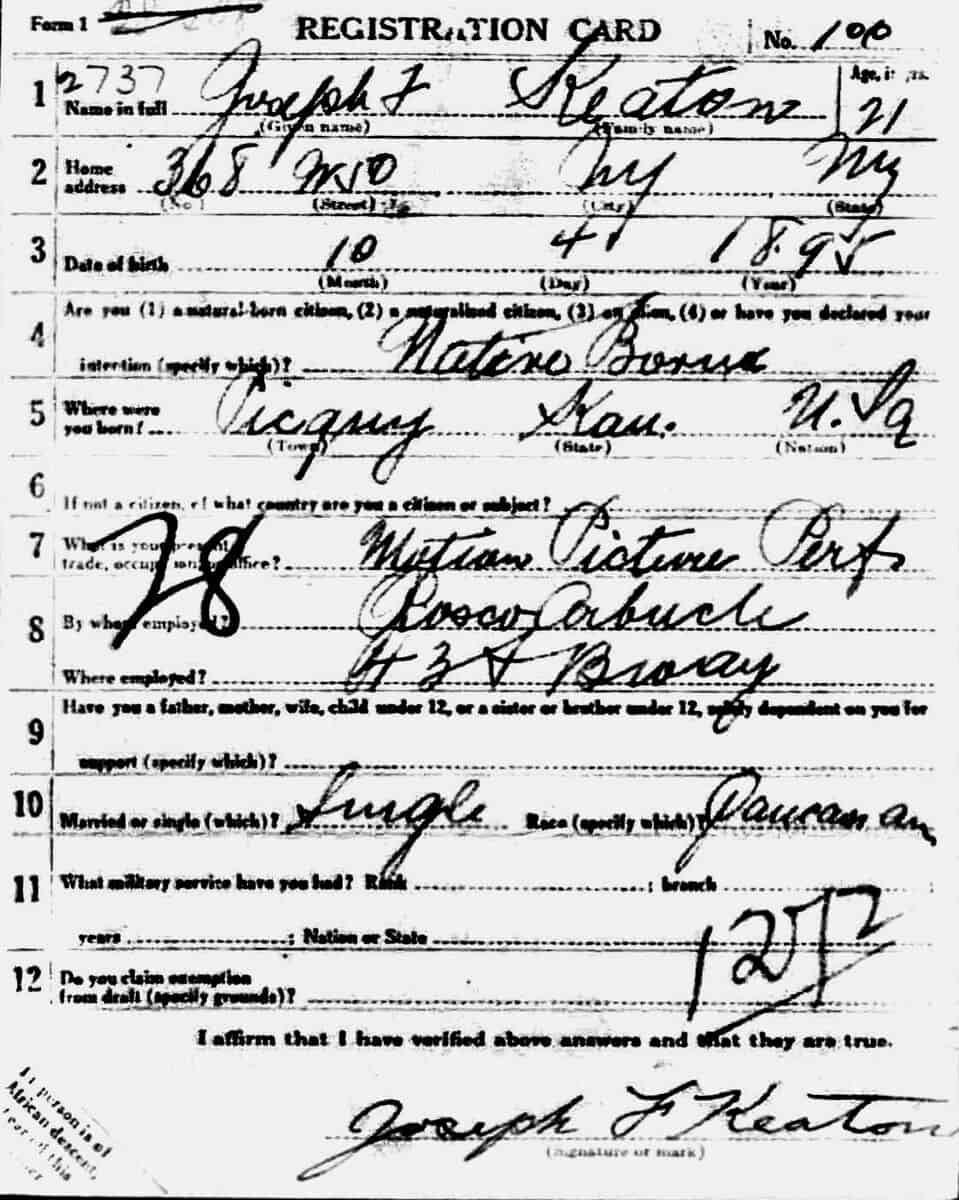 Form 1 REGISTRATION CARD No. 100
1 2737 Name in full Joseph F Keaton Age, in yrs. 21
(Given name) (Family name)
2 Home address 368 W 50 NY NY
(No.) (Street) (City) (State)
3 Date of birth 10 4 1895
(Month) (Day) (Year)
4 Are you (1) a natural-born citizen, (2) a naturalized citizen, (3) an alien, (4) or have you declared your
intention (specify which)? Native Born
5 Where were you born? Picquy Kan. U.Sa
(Town) (State) (Nation)
6 If not a citizen, of what country are you a citizen or subject?
7 What is your present trade, occupation, or office? Motion Picture Perf.
28
8 By whom employed? Rosco Arbucle
Where employed? 43 + Broay
9 Have you a father, mother, wife, child under 12, or a sister or brother under 12, solely dependent on you for
support (specify which)?
10 Married or single (which)? Single Race (specify which)? Caucasian
11 What military service have you had? Rank ; branch
years ; Nation or State
12 Do you claim exemption
from draft (specify grounds)?
I affirm that I have verified above answers and that they are true.
Joseph F Keaton
(Signature or mark)
If person is of
African descent,
tear off this
corner